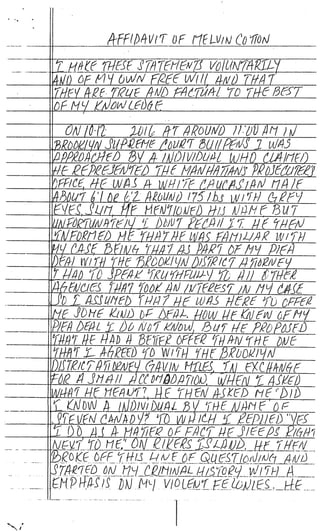 AFFIDAVIT OF MELVIN COTTON
I MAKE THESE STATEMENTS VOLUNTARILY
AND OF MY OWN FREE WILL AND THAT
THEY ARE TRUE AND FACTUAL TO THE BEST
OF MY KNOWLEDGE
ON 10-12 2016 AT AROUND 11:00 AM IN
BROOKLYN SUPREME COURT BULLPENS I WAS
APPROACHED BY A INDIVIDUAL WHO CLAIMED
HE REPRESENTED THE MANHATTANS PROSECUTERS
OFFICE, HE WAS A WHITE CAUCASIAN MALE
ABOUT 6'1 OR 6'2 AROUND 175 lbs WITH GREY
EYES SLIM HE MENTIONED HIS NAME BUT
UNFORTUNATELY I DON'T RECALL IT. HE THEN
INFORMED ME THAT HE WAS FAMILIAR WITH
MY CASE BEING THAT AS PART OF MY PLEA
DEAL WITH THE BROOKLYN DISTRICT ATTORNEY
I HAD TO SPEAK TRUTHFULLY TO ALL OTHER
AGENCIES THAT TOOK AN INTEREST IN MY CASE
SO I ASSUMED THAT HE WAS HERE TO OFFER
ME SOME KIND OF DEAL. HOW HE KNEW OF MY
PLEA DEAL I DO NOT KNOW, BUT HE PROPOSED
THAT HE HAD A BETTER OFFER THAN THE ONE
THAT I AGREED TO WITH THE BROOKLYN
DISTRICT ATTORNEY GAVIN MILES IN EXCHANGE
FOR A SMALL ACCOMODATION. WHEN I ASKED
WHAT HE MEANT?, HE THEN ASKED ME "DID
I KNOW A INDIVIDUAL BY THE NAME OF
STEVEN CANADY? TO WHICH I REPLIED "YES
I DO AS A MATTER OF FACT HE SLEEPS RIGHT
NEXT TO ME," ON RIKERS ISLAND. HE THEN
BROKE OFF THIS LINE OF QUESTIONING AND
STARTED ON MY CRIMINAL HISTORY WITH A
EMPHASIS ON MY VIOLENT FELONIES. HE